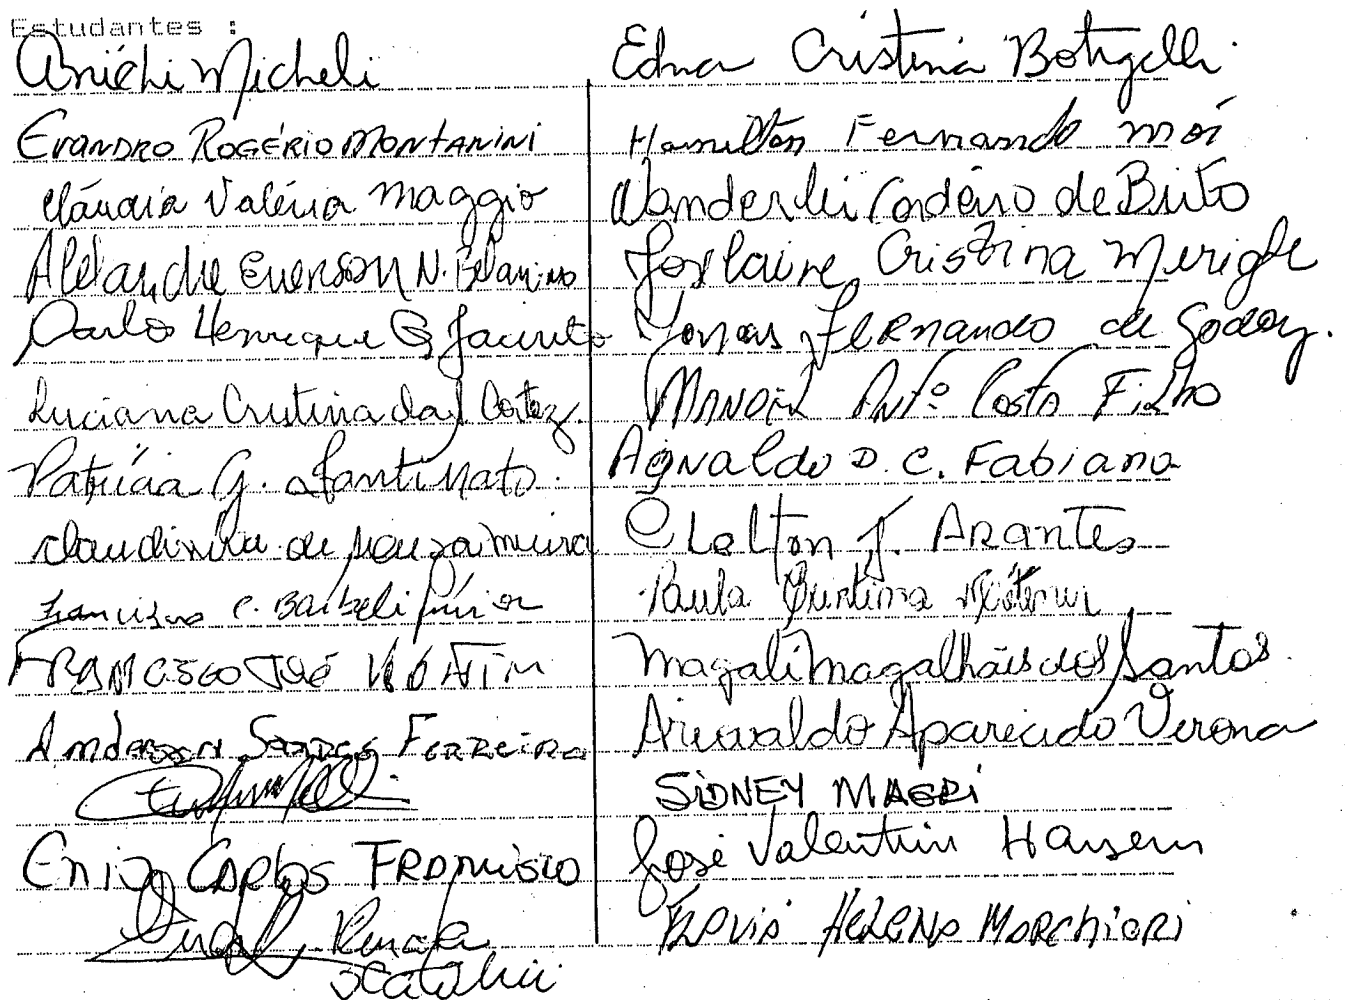 Estudantes :
Micheli
Evandro Rogério Montanini
Cláudia Valéria Maggio
Alexandre Everson N.
Carlos Henrique G. Jacinto
Luciana Cristina da S. Cortez.
Patrícia G. Santinato.
de Souza Meira
Francisco C. Barbeli Júnior
Francisco José
Anderson Santos Ferreira
Enio Carlos Francisco
Renata
Edna Cristina Botigelli
Hamilton Fernando Moi
Wanderlei Cordeiro de Brito
Joslaine Cristina Merighe
Jonas Fernando de Godoy.
Manoel Antº Costa Filho
Agnaldo D. C. Fabiano
Cleiton J. Arantes
Paula Cristina
Magali Magalhães dos Santos
Arivaldo Aparecido Verona
Sidney Magri
José Valentin Hansen
Flavia Helena Marchiori